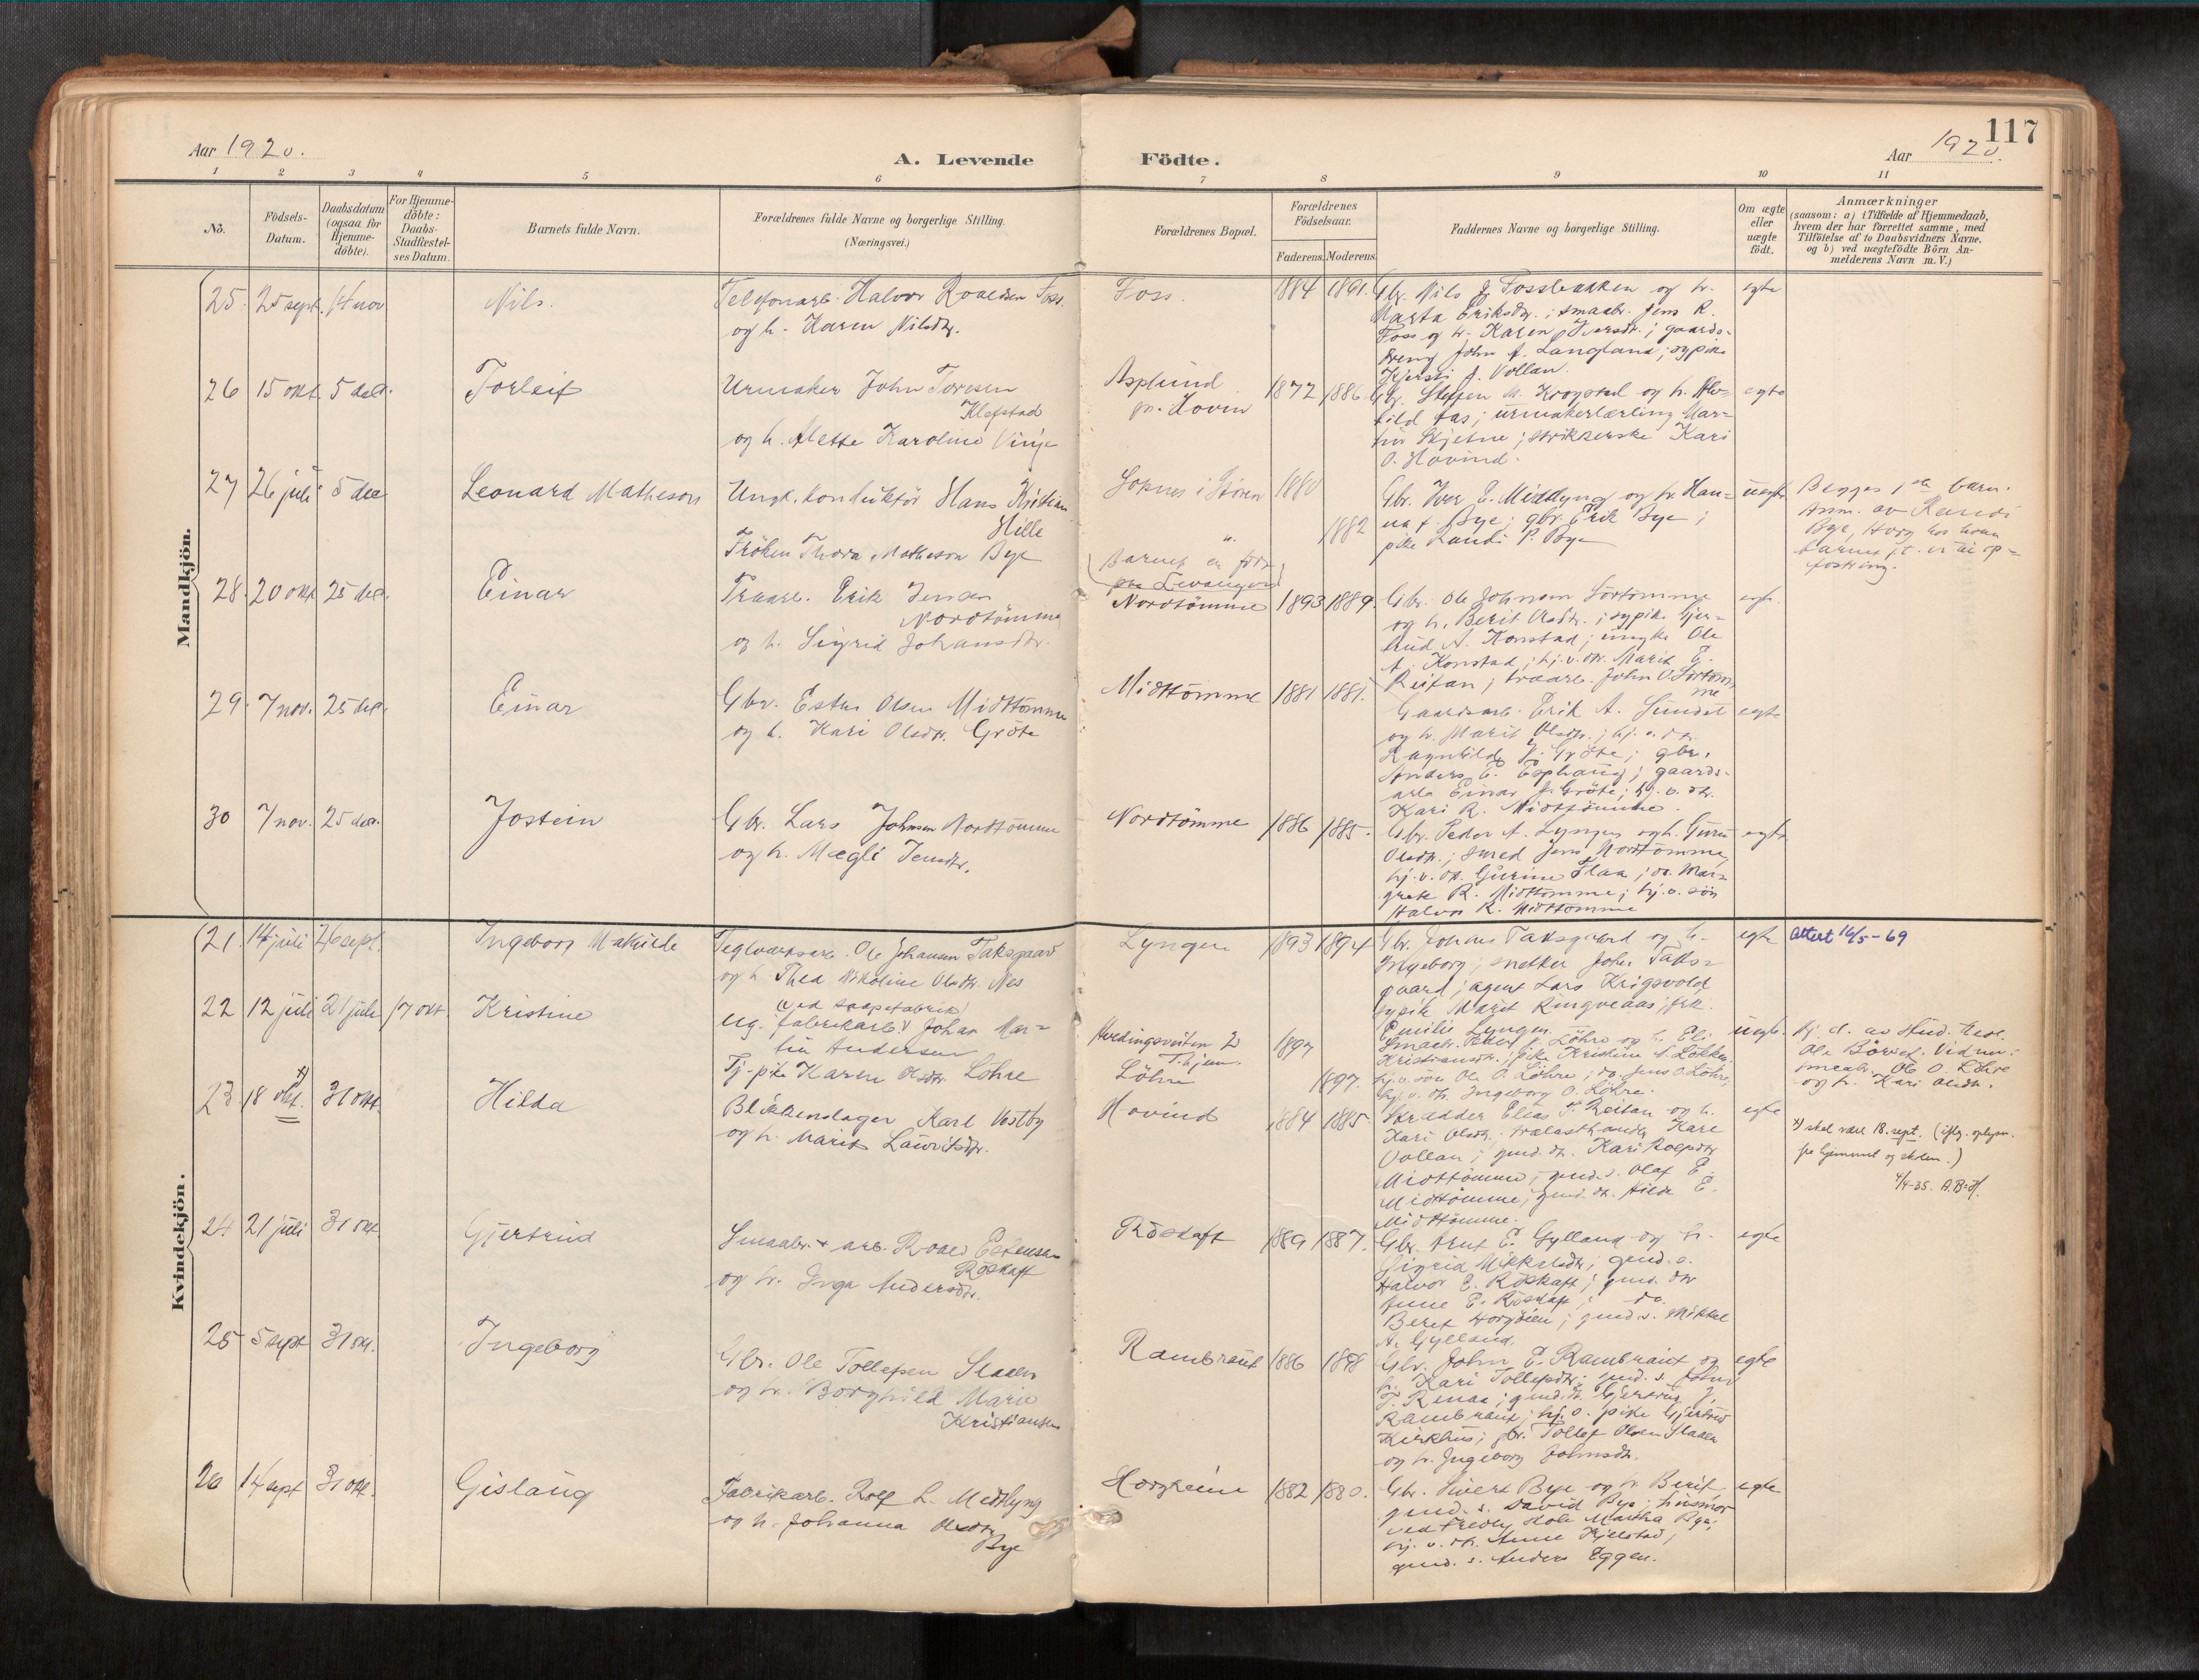 117
Aar 1920.
A. Levende Födte.
Aar 1920.
1 2 3 4 5 6 7 8 9 10 11
No.
Födsels-
Datum.
Daabsdatum
(ogsaa for
Hjemme-
döbte).
For Hjemme-
döbte:
Daabs-
Stadfæstel-
ses Datum.
Barnets fulde Navn.
Forældrenes fulde Navne og borgerlige Stilling.
(Næringsvei.)
Forældrenes Bopæl.
Forældrenes
Födselsaar.
Faderens. Moderens.
Faddernes Navne og borgerlige Stilling.
Om ægte
eller
uægte
födt.
Anmærkninger
(saasom: a) i Tilfælde af Hjemmedaab,
hvem der har forrettet samme, med
Tilföielse af to Daabsvidners Navne,
og b) ved uægtefödte Börn An-
melderens Navn m.V.)
Mandkjön.
25. 25 sept. 14 nov Nils.
Telefonarb. Halvor Roaldsen Foss.
og h. Karen Nilsdtr.
Foss. 1884 1891.
Gbr. Nils J. Fossbakken og h.
Marta Eriksdtr.; smaabr. Jens R.
Foss og h. Karen Iversdr.; gaards-
dreng John A. Langland; sypike
Kjersti J. Vollan.
egte
26 15 okt. 5 dec. Torleif
Urmaker John Toresen
Klefstad
og h. Alette Karoline Vinje
Asplund
pr. Hovin
1872 1886
Gbr. Steffen M. Krogstad og h. Alv-
hild Aas; urmakerlærling Mar-
tin Skjetne; strikkerske Kari
O. Hovind.
egte
27 26 juli 5 dec Leonard Matheson
Ungk. konduktör Hans Kristian
Hille
Fröken Thora Matheson Bye
Soknes i Stören
1880
1882
(Barnet er født
paa Levanger)
Gbr. Iver E. Midtlyng og h. Han-
na f. Bye; gbr. Erik Bye;
pike Randi P. Bye
uegte
Begges 1ste barn.
Anm. av Randi
Bye, Horg hos hvem
barnet f.t. er til op-
fostring.
28. 20 okt 25 dec. Einar
Traarb. Erik Jensen
Nordtömme
og h. Sigrid Johansdtr.
Nordtömme 1893 1889.
Gbr. Ole Johnsen Sörtömme
og h. Berit Olsdtr.; sypike Gjer-
trud A. Konstad; ungk. Ole
A. Konstad; hj.v. dtr. Marit E.
Reitan; traarb. John O. Sörtöm-
me
egte.
29. 7 nov. 25 dec. Einar
Gbr. Esten Olsen Midttömme
og h. Kari Olsdtr. Gröte
Midttömme 1881 1881.
Gaardsarb. Erik A. Sundet
og h. Marit Olsdtr.; hj. v. dtr.
Ragnhild J. Gröte; gbr.
Anders E. Esphaug; gaards-
arb. Einar J. Gröte; hj. v. dtr.
Kari R. Midttömme.
egte
30 7 nov. 25 dec. Jostein
Gbr. Lars Johnsen Nordtömme
og h. Mægli Jensdtr.
Nordtömme 1886 1885.
Gbr. Peder A. Lyngen og h. Guru
Olsdtr.; smed Jens Nordtömme,
hj. v. dtr. Gurine Flaa; do. Mar-
grete R. Midttömme; hj. v. sön
Halvor R. Midttömme
egte
Kvindekjön.
21. 14 juli 26 sept. Ingeborg Mathilde
Teglverksarb. Ole Johansen Taksgaard
og h. Thea Nikoline Olsdtr. Nes
Lyngen 1893 1894.
Gbr. Johan Taksgaard og h.
Ingeborg; snekker John Taks-
gaard; agent Lars Krigsvold,
sypik. Marit Ringveaas; frk.
Emilie Lyngen.
egte
Attest 16/5-69
22 12 juli 21 juli 17 okt. Kristine
(ved saapefabrik)
Ug. fabrikarb. Johan Mar-
tin Andersen
Tj.-pike Karen Olsdtr. Löhre
Hvedingsveiten 2
T.hjem.
Löhre
1897
1897.
Smaabr. Peder J. Löhre og h. Eli
Kristiansdtr.; pike Kristine S. Lökken,
hj. v. sön Ole O. Löhre; do. Jens O. Löhre,
hj. v. dtr. Ingeborg O. Löhre.
uegte.
Hj. d. av stud. med.
Ole Börset. Vidner:
smaabr. Ole O. Löhre
og h. Kari Olsdtr.
23. 18 okt. x) 31 okt. Hilda
Blikkenslager Karl Vestby
og h. Marit Lauritsdtr.
Hovind 1884 1885.
Skrædder Elias T. Reitan og h.
Kari Olsdtr; trælasthandl. Kare
Vollan; gmd. dtr. Kari Roaldsdtr
Midttömme; gmd. s. Olaf E.
Midttömme; gmd. dtr. Hilda E.
Midttömme.
egte
x) skal være 18. sept. (iflg. oplysn.
fra hjemmet og skolen.)
4/4-35. A.B-H.
24 21 juli 31 okt. Gjertrud
Smaabr. + arb. Roald Estensen
Röskaft
og h. Inga Andersdtr.
Röskaft 1889 1887.
Gbr. Arnt E. Gylland og h.
Sigrid Mikkelsdtr; gmd. s.
Halvor E. Röskaft; gmd. dtr
Anne E. Röskaft; do.
Beret Horgöien; gmd. s. Mikkel
A. Gylland.
egte
25 5 sept 31 okt. Ingeborg
Gbr. Ole Tollefsen Staalen
og h. Borghild Marie
Kristiansen
Rambraut 1886 1898
Gbr. John E. Rambraut og
h. Kari Tollefsdtr; gmd. s. John
T. Renaa; gmd. dt. Gjertrud J.
Rambraut; hj. v. pike Gjertrud
Kirkhus; gbr. Tollef Olsen Staalen
og h. Ingeborg Johnsdtr.
egte
26 14 sept 31 okt. Gislaug
Fabrikarb. Rolf L. Midtlyng
og h. Johanna Olsdtr
Bye
Horgheim 1882 1880.
Gbr. Sivert Bye og h. Berit,
gmd. s. David Bye; husmor
ved Fredly skole Martha Bye;
hj. v. dtr. Anne Kjelstad;
gmd. s. Anders Eggen.
egte